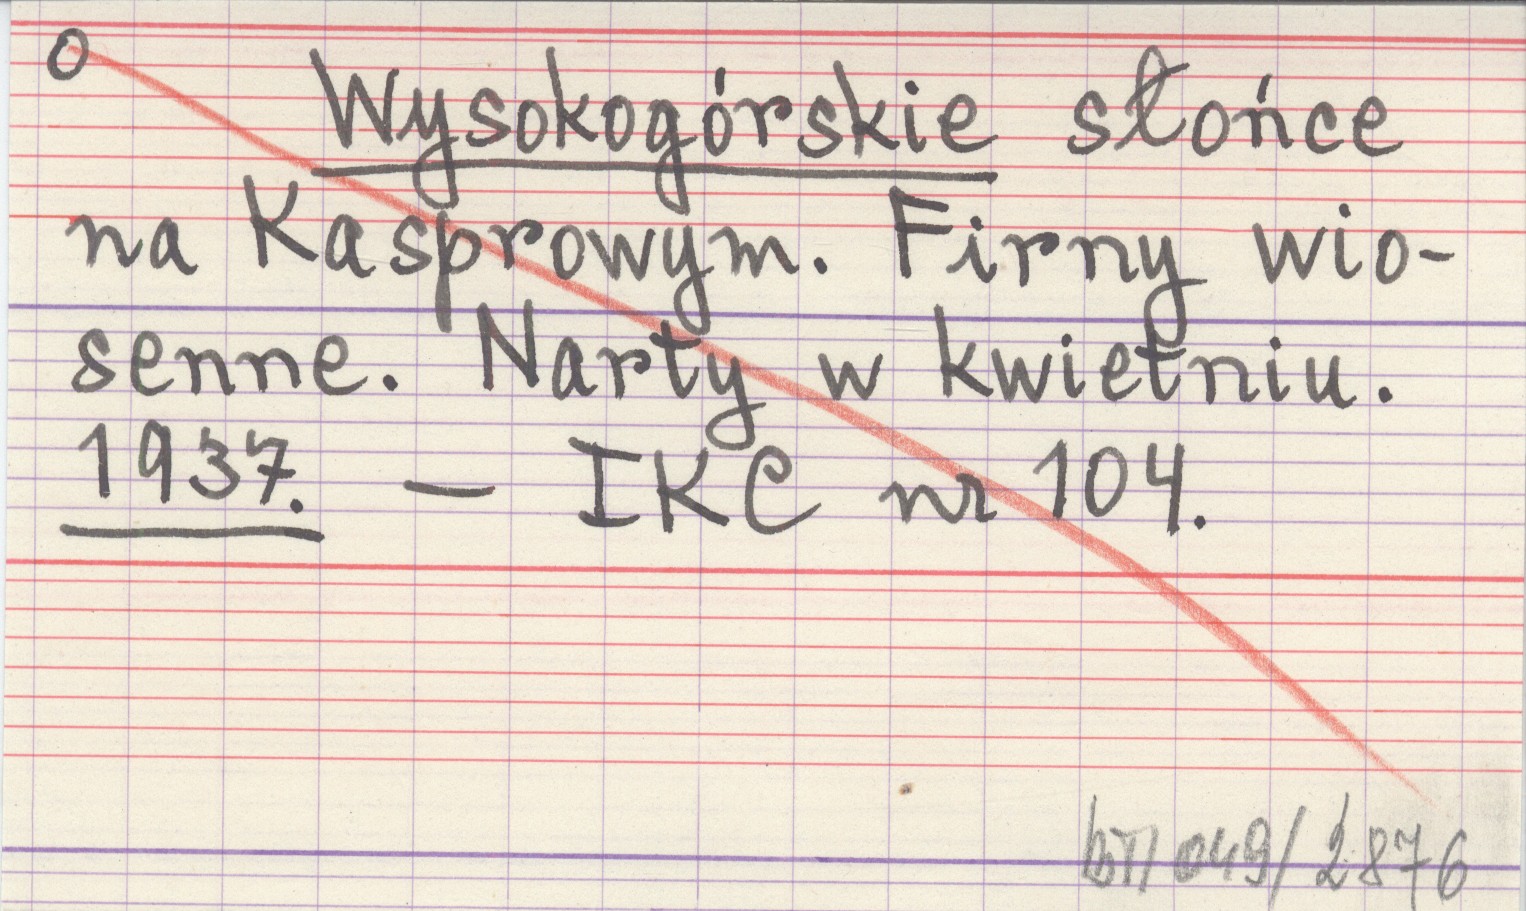 O
Wysokogórskie słońce
na Kasprowym. Firny wio-
senne. Narty w kwietniu.
1937. — IKC nr 104.
/049/2876